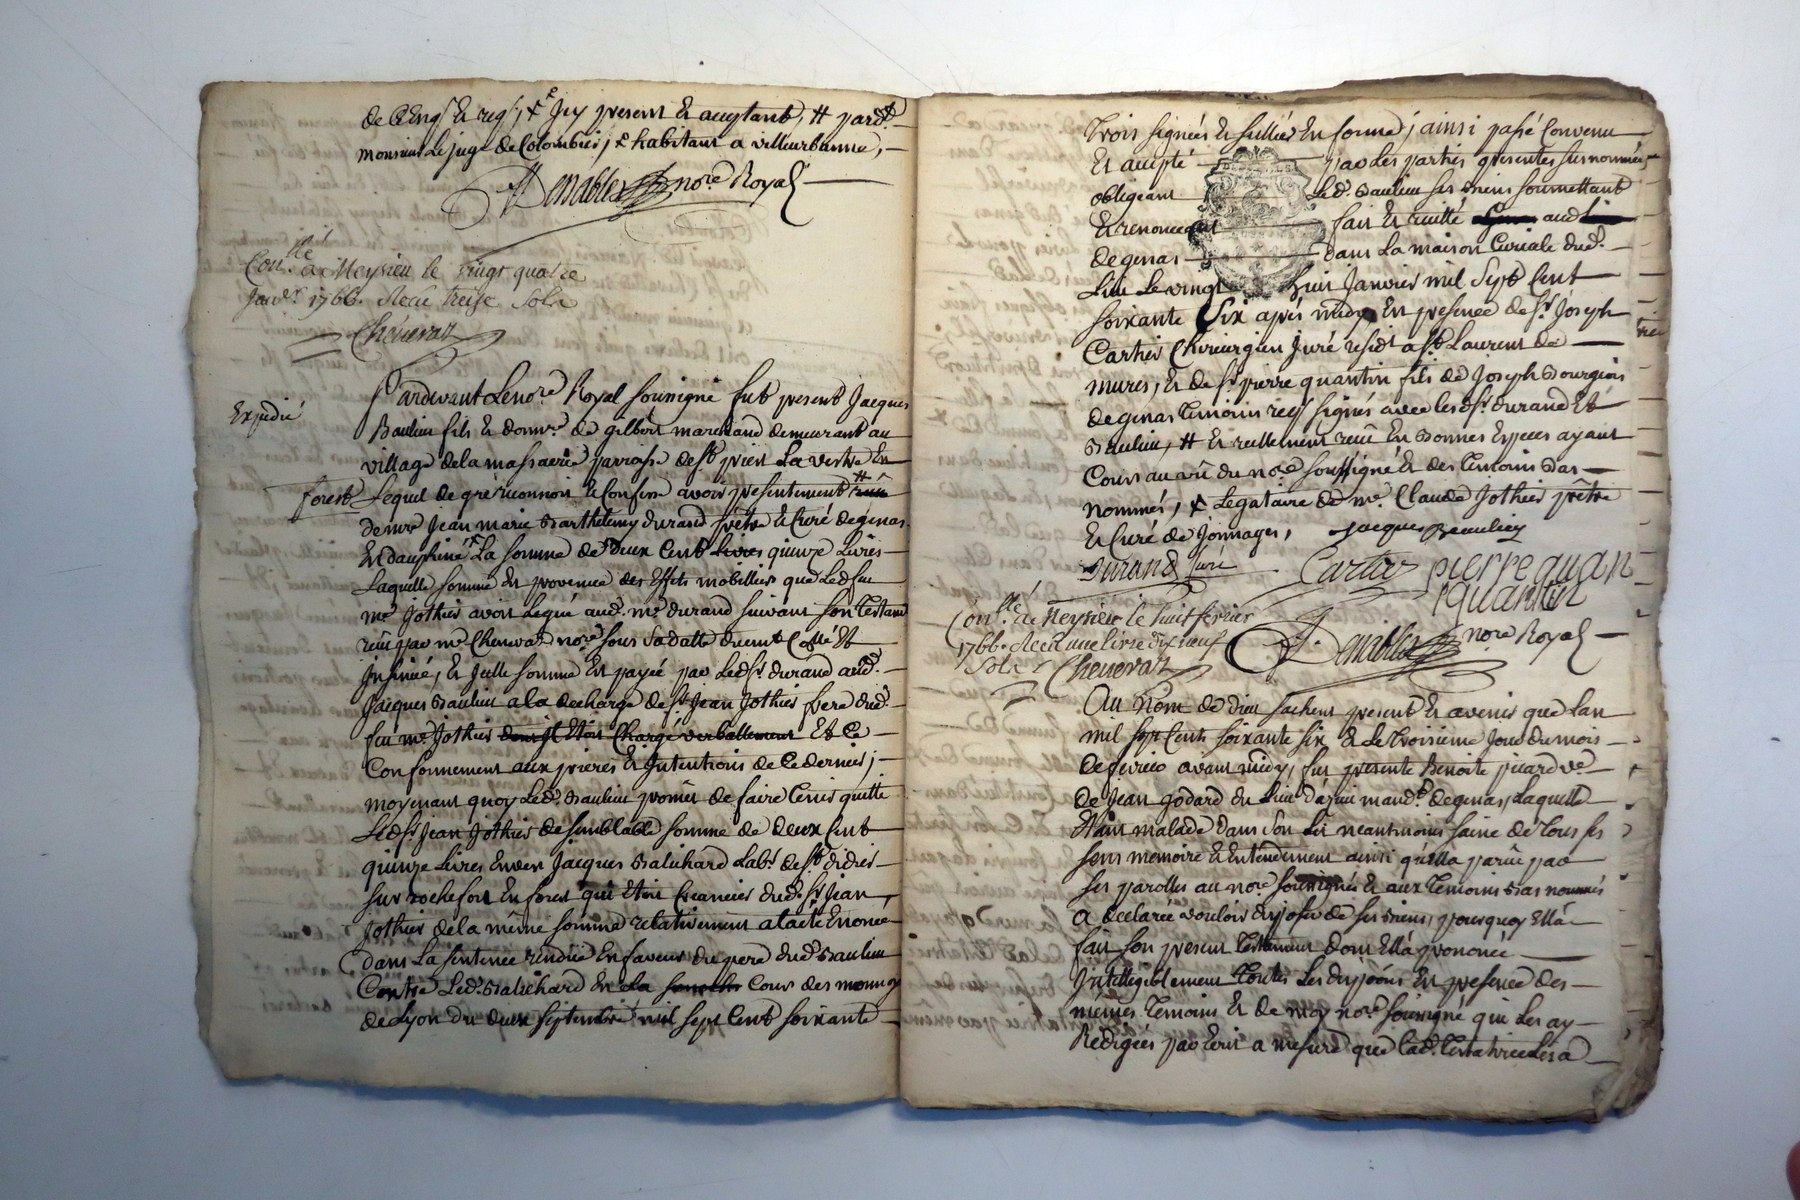 de Cens et reqs, ✗ Icy present et acceptant, # pard.t
monsieur Le juge de Colombier, ✗ habitant a villeurbanne,
Denable nore Royal
Con.llé a Meysieu le vingt quatre
Janv.r 1766. Reçu treize Sols
Cheuvas
Expedié
Pardevant Le nore Royal soussigné fut present Jacques
Baulieu fils et donnre de gilbert marchand demeurant au
village de la massaerie parroisse de st priest La vestre En
forest Lequel de gré reconnoit et confesse avoir presentement #
de mre Jean marie Barthelemy durand prêtre et Curé de genas
En dauphiné ✗ La somme de deux cent livres quinze Livres
Laquelle somme est provenue des Effets mobilliers que Led. feu
mre Jothier avoit legué aud. mre durand suivant son testam.t
reçu par mre Cheuvas nore sous sa datte duemt Collé et
Insinué, et Icelle somme est payée par Led. Sr. durand aud.
Jacques Baulieu a la decharge de sr Jean Jothier frere dud.
feu mre Jothier dont Il Etoit Chargé verballement Et Ce
Conformement aux prieres et Intentions de Ce dernier;
moyenant quoy Led. Baulieu promet de faire tenir quitte
Led. Sr Jean Jothier de semblable somme de deux cent
quinze Livres envers Jacques Balichard Labr. de st didier
sur rochefort en forest qui Etoit Creancier dud. sr Jean
Jothier de la même somme relativement a l'acte Enoncé
dans La sentence rendüe en faveur du pere dud. Baulieu
Contre Led. Balichard en la Cour des monnoyes
de Lyon du deux septembre mil sept cent soixante
trois signée et scellée en forme; ainsi passé Convenu
Et accepté par Les parties presentes susnommées
obligeant Led. Baulieu ses biens soumettant
Et renonceant fait et recitté aud.
de genas dans La maison Curiale dud.
Lieu Le vingt huit Janvier mil sept cent
soixante Six après midy, En presence de sr Joseph
Cartier Chirurgien Juré residt a st Laurent de
mures, et de sr pierre quantin fils de Joseph Bourgeois
de genas temoins reqs signés avec lesd. srs durand et
Baulieu, # et reellement reçu En bonnes Especes ayant
Cours au vû du nore soussigné et des temoins bas
nommés, ✗ Legataire de mre Claude Jothier prêtre
et Curé de Jonnages, Jacques Beaulieu
Durand Curé Cartier pierre quan
quantin
Con.llé a Meysieu le huit fevrier
1766. Recu une livre dix neuf
Sols Cheuvas
Denable nore Royal
Au Nom de dieu sachent present et avenir que Lan
mil sept Cent soixante six et Le troisieme Jour du mois
de fevrier avant midy, fut presente Benoite picard ve
de Jean godard du Lieu d'azieu mandt de genas, Laquelle
Etant malade dans son Lit neantmoins saine de tous ses
sens memoire et Entendement ainsi qu'Il a parû par
ses parolles au nore soussigné et aux temoins bas nommés
a declaré vouloir disposer de ses biens, pourquoy Ell'a
fait son present testament dont Ell'a prononcé
Intelligiblement toutes Les disp.ons en presence des
mêmes temoins et de moy nore soussigné qui Les ay
Redigées par Ecrit a mesure que Lad. testatrice Les a